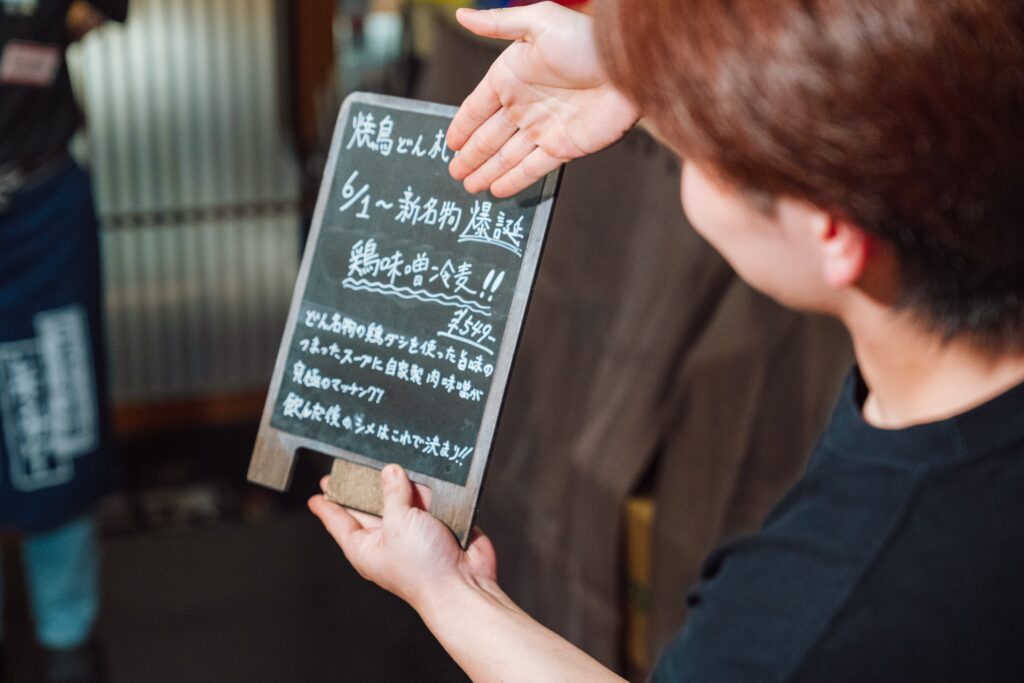 焼鳥どん札
6/1〜新名物 爆誕
鶏味噌冷麦!!
¥549-
どん名物の鶏ダシを使った旨味の
つまったスープに自家製肉味噌が
究極のマッチング!
飲んだ後のシメはこれで決まり!!